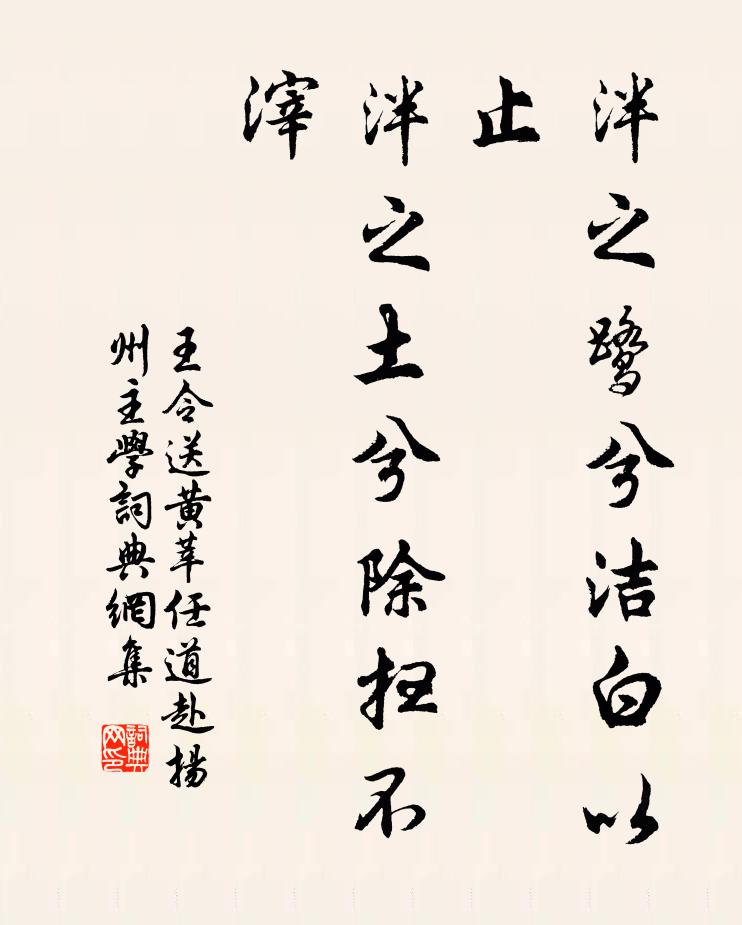 泮之鹭兮洁白以
止
泮之土兮除不
滓
王令送黄莘任道赴揚
州主學詞典網集
詞典
网印